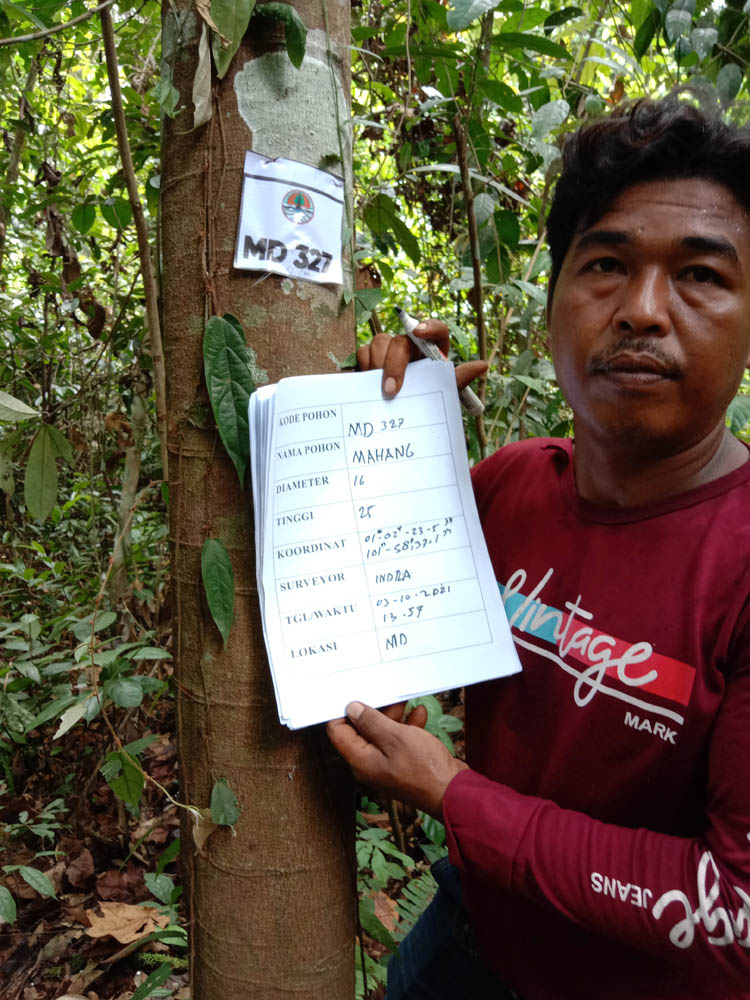 MD 327
KODE POHON MD 327
NAMA POHON MAHANG
DIAMETER 16
TINGGI 25
KOORDINAT 01°-02'-23-5"
101°-58'37.1"
SURVEYOR INDRA
TGL/WAKTU 03-10-2021
13-57
LOKASI MD
Vintage
MARK
JEANS